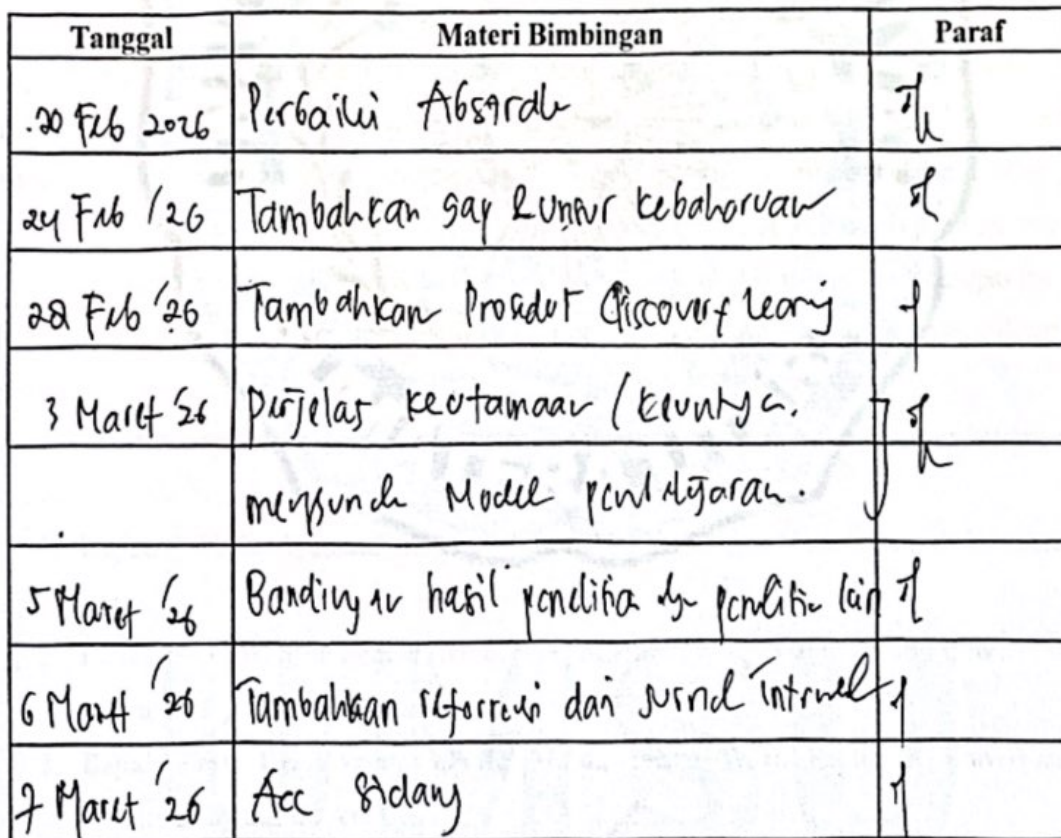 Tanggal Materi Bimbingan Paraf
20 Feb 2026 Perbaiki Abstrak
24 Feb '26 Tambahkan gap & unsur kebaharuan
28 Feb '26 Tambahkan Prosedur discovery learning
3 Maret '26 perjelas keutamaan / keuntungan
Model pembelajaran.
5 Maret '26 Bandingkan hasil penelitian dgn penelitian lain
6 Maret '26 Tambahkan referensi dari jurnal
7 Maret '26 Acc Sidang